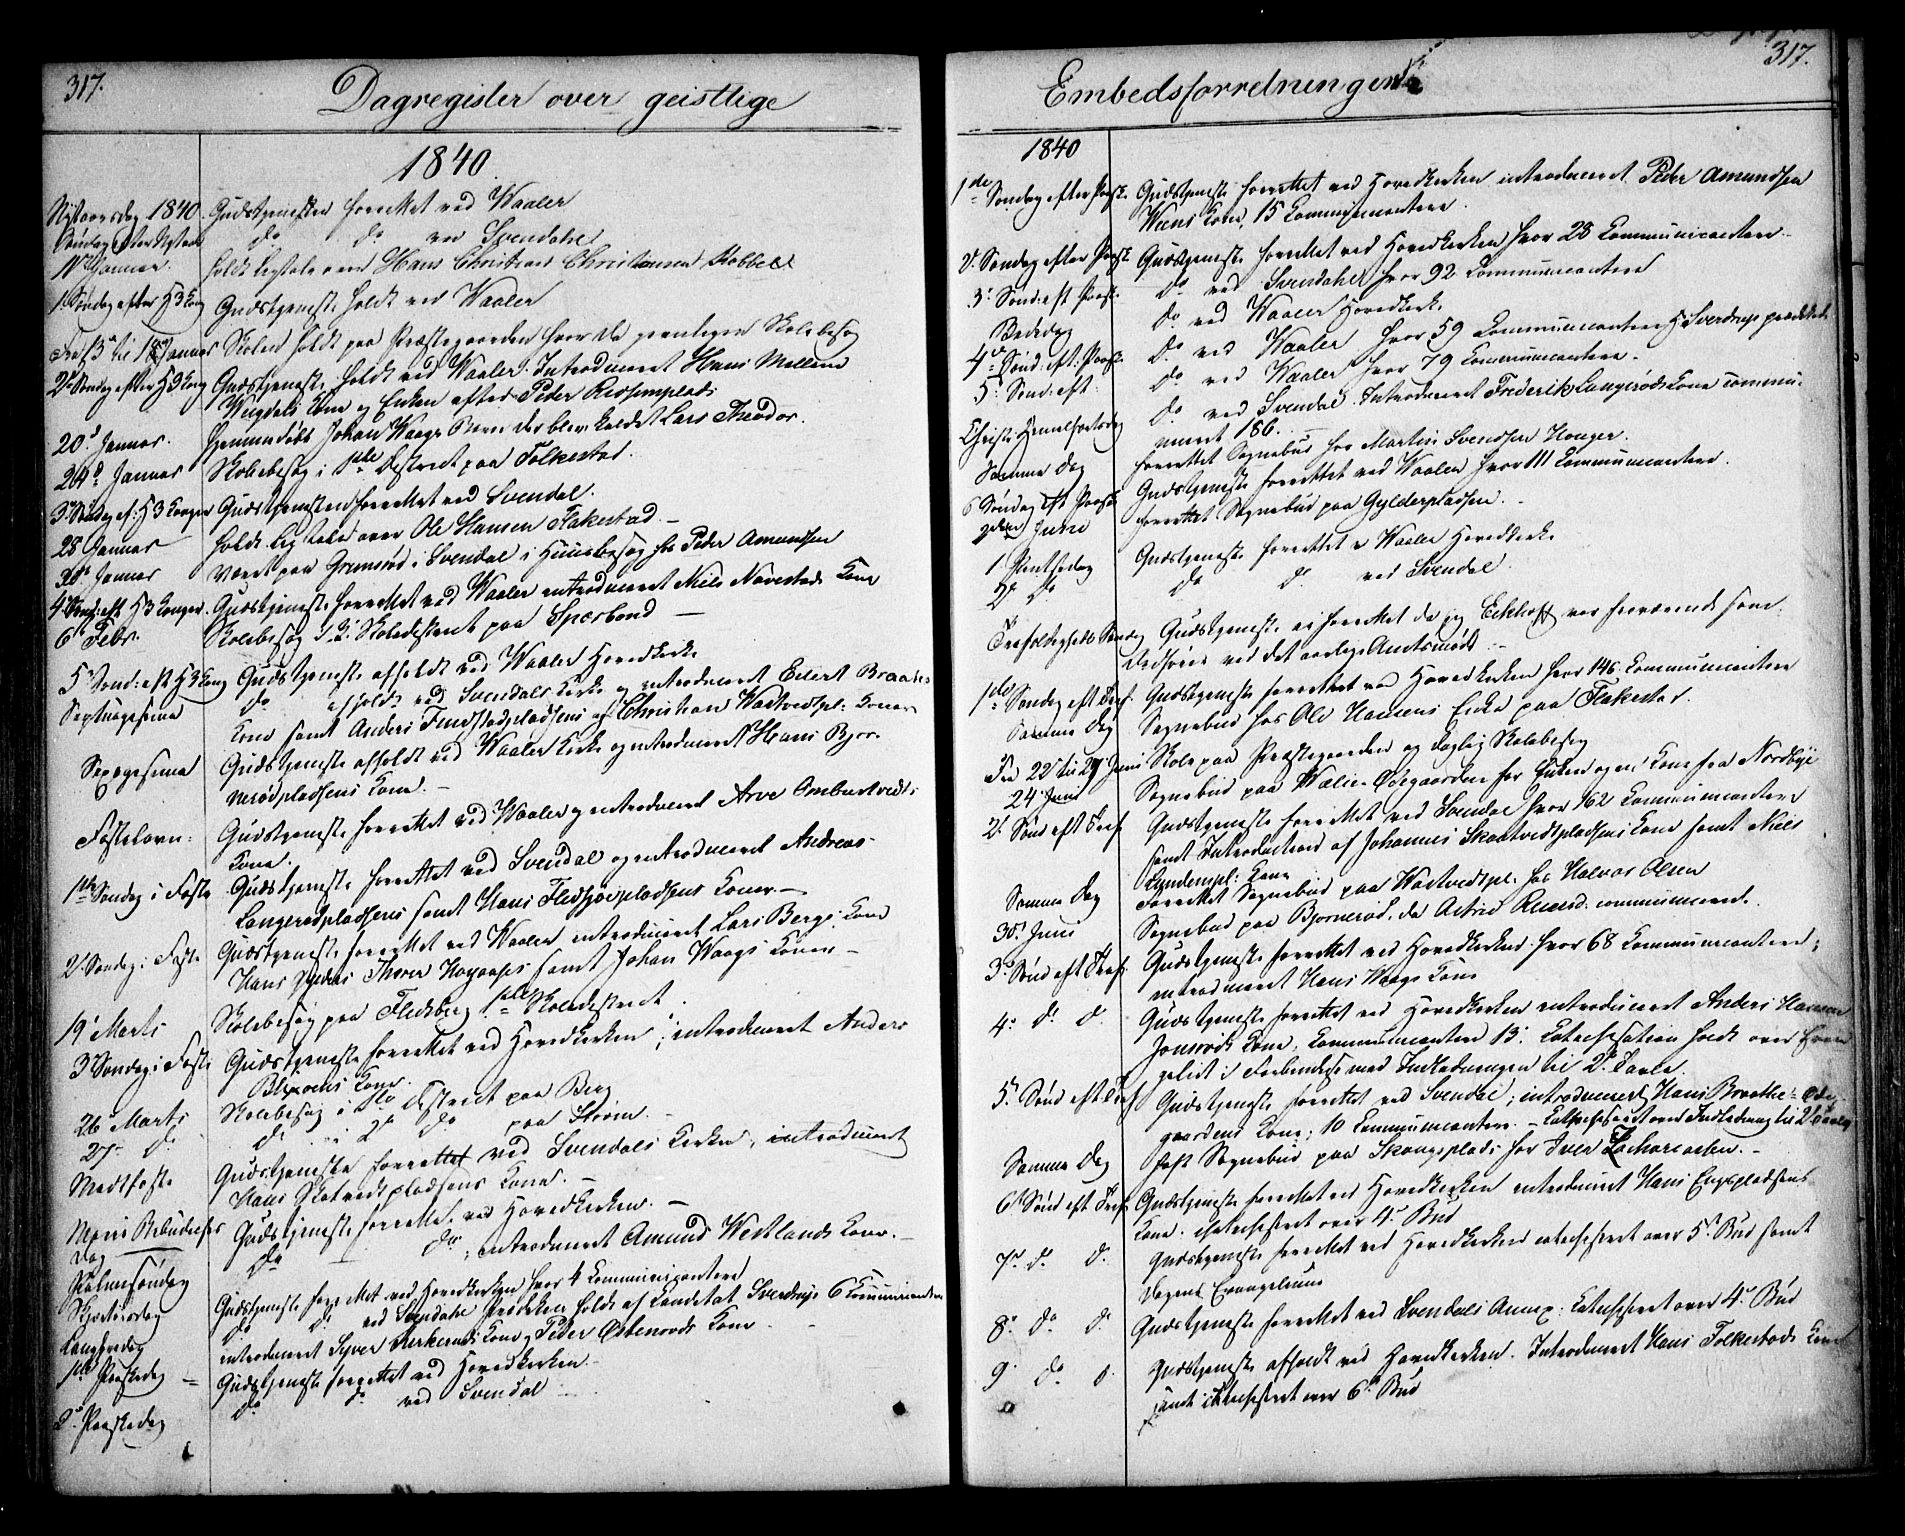 317.
Dagregister over geistlige
1840.
Nytaarsdag 1840. Gudstjenesten forrettet ved Waaler
Søndag efter Nytaar do do ved Svendahl
Januar. holdt Ligtale over Hans Christian Christensen Kobbel
1. Søndag efter H 3 Kong Gudstjeneste holdt ved Waaler
Fra 13 til 18 Januar Skolen holdt paa Præstegaarden hvor de jevnligen Skolebesøg
2den Søndag efter H 3 Kong Gudstjeneste holdt ved Waaler. Introduceret Hans Mellem
Kone og Enken efter Peder
20de Januar. hjemmedøbt Johan Waags Barn der blev kaldet Lars Theodor.
24de Januar Skolebesøg i 1ste District paa Folkestad.
3die Søndag ef: H 3 Konger Gudstjenesten forrettet ved Svendal.
28 Januar holdt Ligtale over Ole Hansen Flakestad. –
30te Januar Været paa Grimsrød i Svendal i Huusbesøg hos Peder Amundsen
4de Sønd: eft H 3 Konger. Gudstjeneste forrettet ved Waaler introduceret Niels Navestads Kone
6te Febr. Skolebesøg i 2. Skoledistrict paa Spærbond –
5te Sønd: eft H 3 Kong Gudstjeneste afholdt ved Waaler Hovedkirke
Septuagesima do afholdt ved Svendals Kirke og introduceret Eilert Braaten
Kone samt Anders Findstadpladsens og Christian Wartvedtpl: Koner
Sexagesima Gudstjeneste afholdt ved Waaler Kirke og introduceret Hans Bjor-
nerødpladsens Kone. –
Fastelavn: Gudstjeneste forrettet ved Waaler og introduceret Arve Ombustvedts
Kone.
1ste Søndag i Faste Gudstjeneste forrettet ved Svendal og introduceret Andreas
Langerødpladsens samt Hans Fledsjøepladsens Koner. –
2. Søndag i Faste Gudstjeneste forrettet ved Waaler introduceret Lars Bergs Kone
Hans Thorer samt Johan Waags Koner –
19de Marts Skolebesøg paa Flesberg 1ste Skoledistrict.
3die Søndag i Faste Gudstjeneste forrettet ved Hovedkirken; introduceret Anders
Kone.
26 Marts Skolebesøg i 1ste District paa Berg
27 – do do i 2de do paa Strøm. –
Midtfaste Gudstjeneste forrettet ved Svendals Kirke, introduceret
Hans Skotvedtpladsens Kone. –
Mariæ Bebudelses Gudstjeneste forrettet ved Hovedkirken. –
Dag
Palmesøndag do do, introduceret Amund Westlands Kone. –
Skjertorsdag Gudstjeneste forrettet ved Hovedkirken hvor 4 Communicantere
Langfredag do do ved Svendahl Prædiken holdt af Candidat Sverdrup 6 Communicantere
introduceret Syver Kone, Peder Østenrøds Kone
1ste Paaskedag – Gudstjeneste forrettet ved Hovedkirken –
2. Paaskedag do do ved Svendal –
317.
Embedsforretninger
1840
1ste Søndag efter Paask. Gudstjeneste forrettet ved Hovedkirken introduceret Peder Amundsen
Kone, 15 Communicantere.
2. Søndag efter Paask Gudstjeneste forrettet ved Hovedkirken hvor 28 Communicantere –
3. Sønd: eft Paask. do ved Svendahl hvor 92 Communicantere
Bededag do ved Waaler Hovedkirk.
4de Sønd: eft. Paask do ved Waaler hvor 59 Communicantere H. Sverdrup prædikede
5. Sønd: eft. do ved Waaler hvor 79 Communicantere –
Christi Himmelfartsdag do ved Svendal. Introduceret Frederik Langerøds Kone commu-
niceret 186. –
Samme Dag forrettet Sognebud hos Martin Svendsen Houger.
6 Søndag eft Paask Gudstjeneste forrettet ved Waaler hvor 111 Communicantere.
2den Juni forrettet Sognebud paa Gylderpladsen. –
1 Pintsedag Gudstjeneste forrettet v Waaler Hovedkirke
2. do do do ved Svendal
Trefoldigheds Søndag Gudstjeneste ei forrettet da jeg Eckhoff var fraværende som
ved det aarlige Amtsmøde. –
1ste Søndag eft Tref. Gudstjeneste forrettet ved Hovedkirken hvor 146 Communicantere
Samme Dag Sognebud hos Ole Hansens Enke paa Flakestad.
Fra 22 til 27 Juni Skole paa Præstegaarden og daglig Skolebesøg
24 Juni Sognebud paa Wælin Ødegaarden for Enken og en Kone fra Nordbye
2. Sønd eft Tref Gudstjeneste forrettet ved Svendal hvor 162 Communicantere
samt Introduction af Johannes Skaatvedtpladsens Kone samt Niels
Lundempl: Kone
Samme Dag forrettet Sognebud paa Wartvedtspl. hos Halvor Olsen
30te Juni Sognebud paa Bjørnerød, da Astrid communiceret.
3die Sønd eft Tref. Gudstjeneste forrettet ved Hovedkirken hvor 68 Communicantere;
introduceret Hans Waags Kone
4. do do Gudstjeneste forrettet ved Hovedkirken introduceret Anders Hansen
Jonsrøds Kone. Communicantere 13. Catechisation holdt over Evan
geliet i Forbindelse med Indledningen til 2. Tavle.
5te Sønd eft Tref Gudstjeneste forrettet ved Svendal; introduceret Hans Braathe- Øde
gaardens Kone; 10 Communicantere. – Catechiseret over Indledning til 2. Tavle
Samme Dag holdt Sognebud paa Skougsplads for Iver Zachariasen. –
6te Sønd eft Tref Gudstjeneste forrettet ved Hovedkirken introduceret Hans Engspladsens
Kone. Catechiseret over 4de Bud
7de do do Gudstjeneste forrettet ved Hovedkirken catechiseret over 5te Bud samt
Dagens Evangelium
8. do do Gudstjeneste forrettet ved Svendals Annex: Catechiseret over 4de Bud
9. do do Gudstjeneste afholdt ved Hovedkirken. Introduceret Hans Folkestads Kone
samt catechiseret over 6te Bud